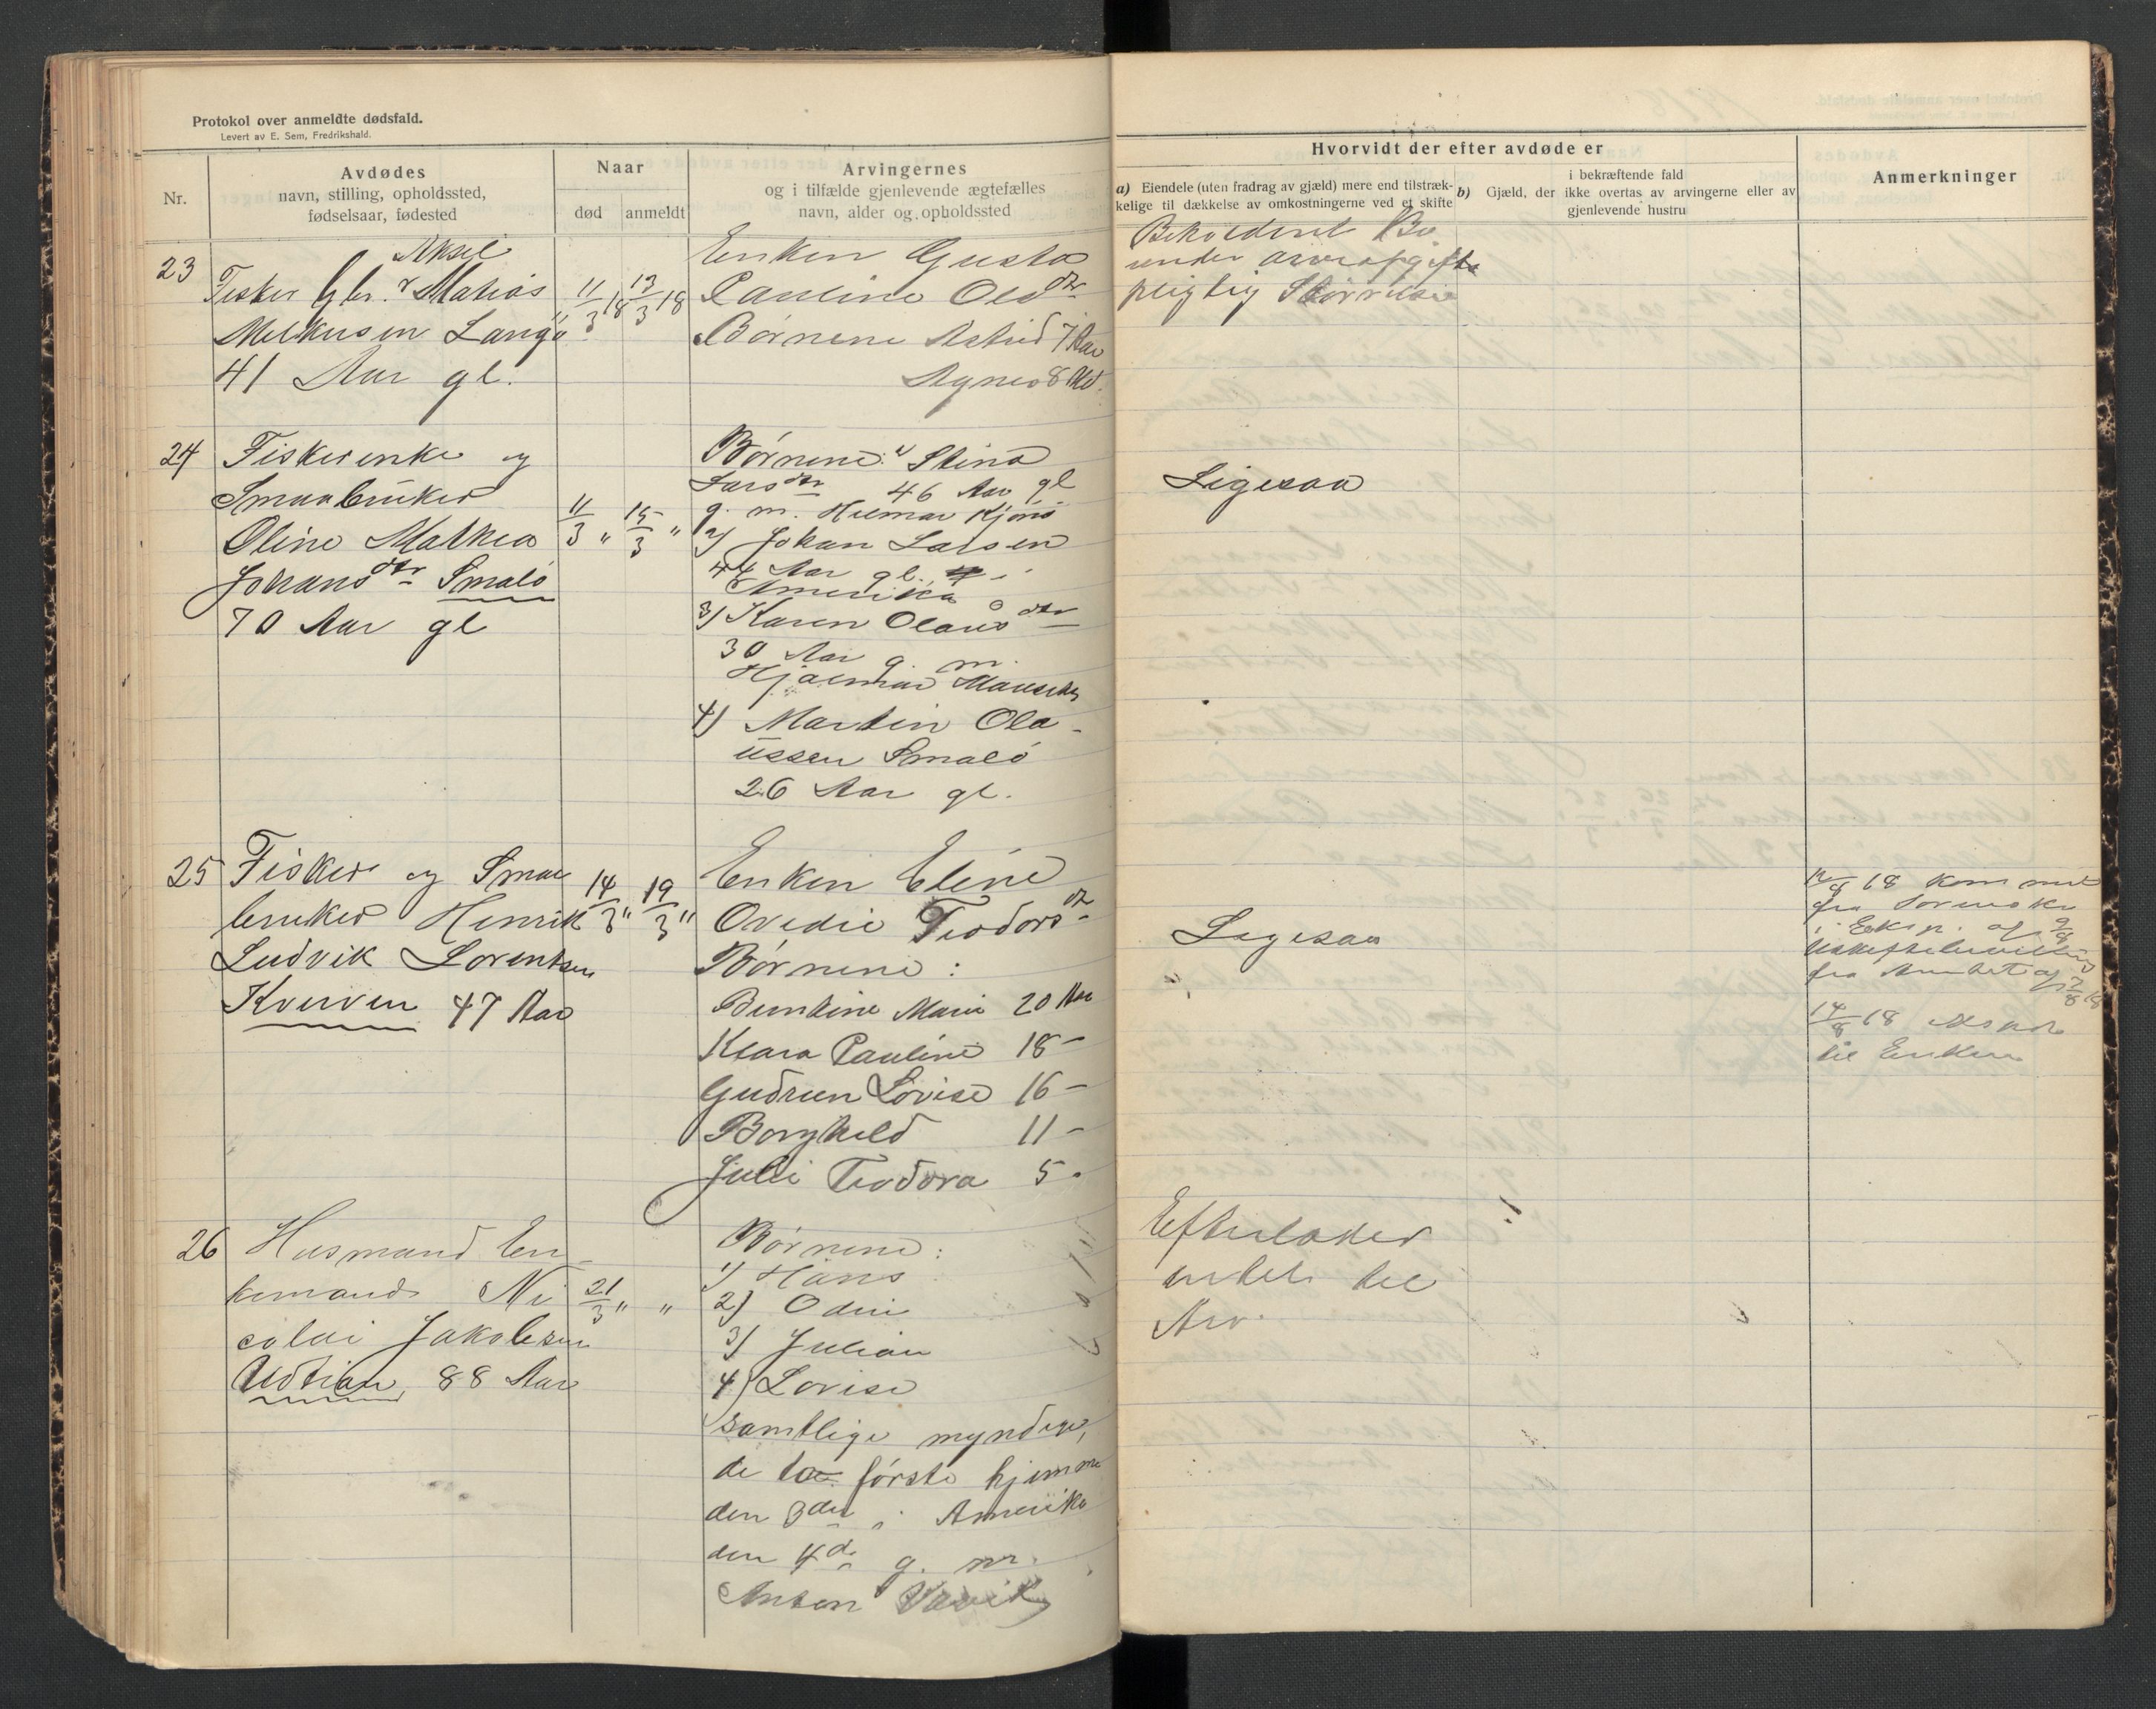 Protokol over anmeldte dødsfald.
Levert av E. Sem, Fredrikshald.
Nr.
Avdødes
navn, stilling, opholdssted,
fødselsaar, fødested
Naar
død
anmeldt
Arvingernes
og i tilfælde gjenlevende ægtefælles
navn, alder og opholdssted
Hvorvidt der efter avdøde er
a) Eiendele (uten fradrag av gjæld) mere end tilstræk-
kelige til dækkelse av omkostningerne ved et skifte
i bekræftende fald
b) Gjæld, der ikke overtas av arvingerne eller av
gjenlevende hustru
Anmerkninger
23
Aksel
Fisker Gbr. Matias
Melkusen Langö
41 Aar gl.
11/3 18
13/3 18
Enken Gusta
Pauline Ols dtr
Börnene Astrid 7 Aar
Agnes 8 Md.
Beholdent Bo
under arveafgifts
pligtig Störrelse
24
Fiskerenke og
Smaabruker
Oline Mathea
Johans dtr Smalö
70 Aar gl
11/3 "
15/3 "
Börnene: Stina
Lars dtr 46 Aar gl
g. m. Hilmar Kjönö
2) Johan Larsen
44 Aar gl. i
Amerika
3) Karen Olaus dtr
30 Aar g. m.
Hjalmar
4) Martin Ola-
ussen Smalö
26 Aar gl.
Ligesaa
25
Fisker og Smaa
bruker Henrik
Ludvik Lorentsen
Kverven 47 Aar
14/3 "
19/3 "
Enken Eline
Ovedie Teodors dtr
Börnene:
Berntine Marie 20 Aar
Klara Pauline 18 -
Gudrun Lovise 16 -
Borghild 11 -
Juli Teodora 5 -
Ligesaa
12/8 18 kom
fra Sorenskr
i Eksp. af 9/8
Uskiftebevilling
fra Amtet af 7/8 18
14/8 18
til Enken
26
Husmand En-
kemand Ni
colai Jakobsen
Udtian, 88 Aar
21/3 " "
Börnene:
1) Hans
2) Odin
3) Julian
4) Lovise
samtlige myndige,
de to förste hjemme
den 3die i Amerika
den 4de g. m.
Anton
Efterlader
intet til
Arv.